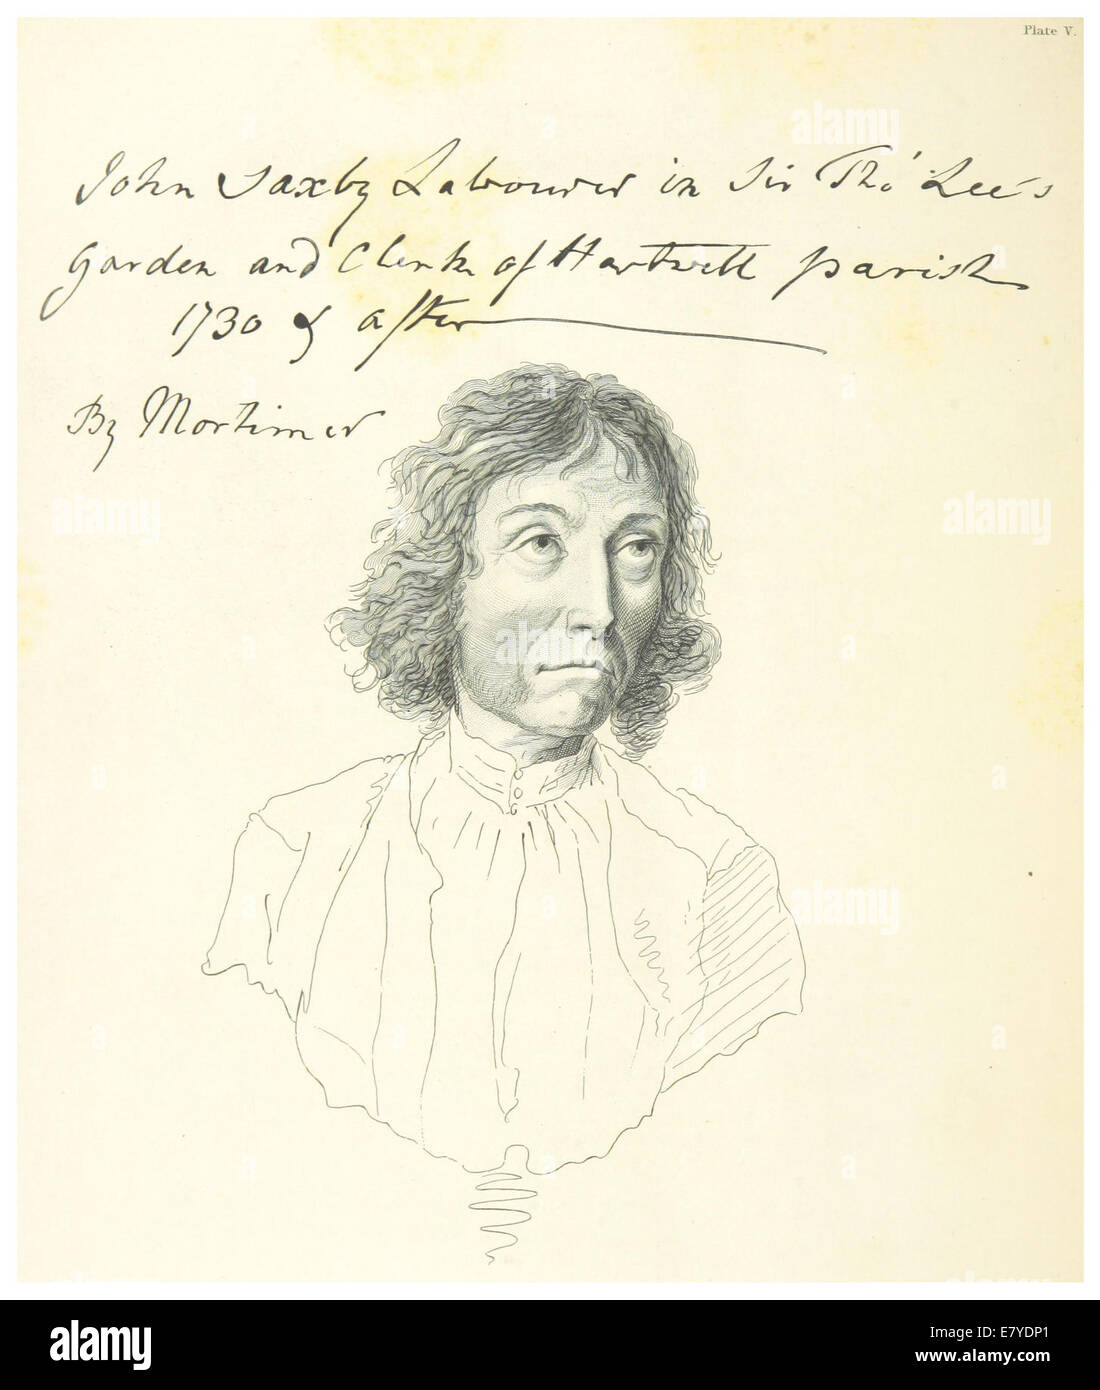 Plate V.
John Saxby Labourer in Sir Tho' Lee's
Garden and Clerk of Hartwell parish
1730 & after
By Mortimer
alamy
alamy
alamy
alamy
alamy
alamy
Image ID: E7YDP1
www.alamy.com